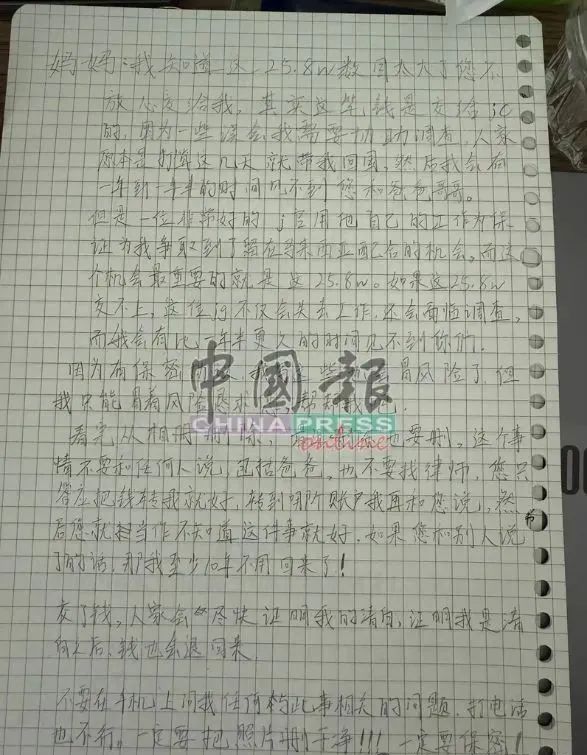 妈妈:我知道这25.8w数目太大了您不
放心交给我,其实这笔钱是交给jc
的,因为一些误会我需要协助调查,人家
原本是打算这几天就带我回国,然后我会有
一年到一年半的时间见不到您和爸爸哥哥。
但是一位非常好的j官用他自己的工作为保
证为我争取到了留在马来西亚配合的机会。而这
个机会最重要的就是这25.8w。如果这25.8w
交不上,这位jg不仅会失去工作,还会面临调查,
而我会有比一年半更久的时间见不到你们,
因为有保密 冒风险了但
我只能冒着风险恳求
看完从相册 也要删。这个事
情不要和任何人说,包括爸爸,也不要找律师,您只
答应把钱转我就好,转到哪个账户我再和您说,然
后您就当作不知道这件事就好,如果您和别人说
了的话,那我至少10年不用回来了!
交了钱,人家会尽快证明我的清白,证明我是清
白之后,钱也会退回来
不要在手机上问我任何与此事相关的问题,打电话
也不行。一定要把照片删干净!!!一定要保密!
中國報
CHINA PRESS
online